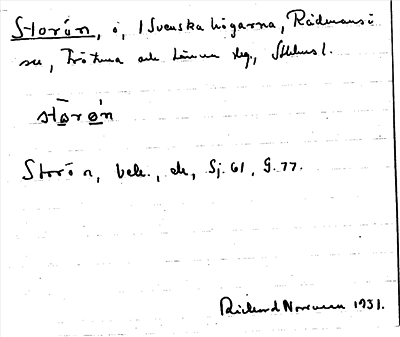 Storön, ö, i Svenska högarna, Rådmansö
sn, Frötuna och Länna skg, Sthlms l.
stọ̄rø̀n
Storön, beb., ek, Sj. 61, G. 77.
Rickard Noreen 1931.